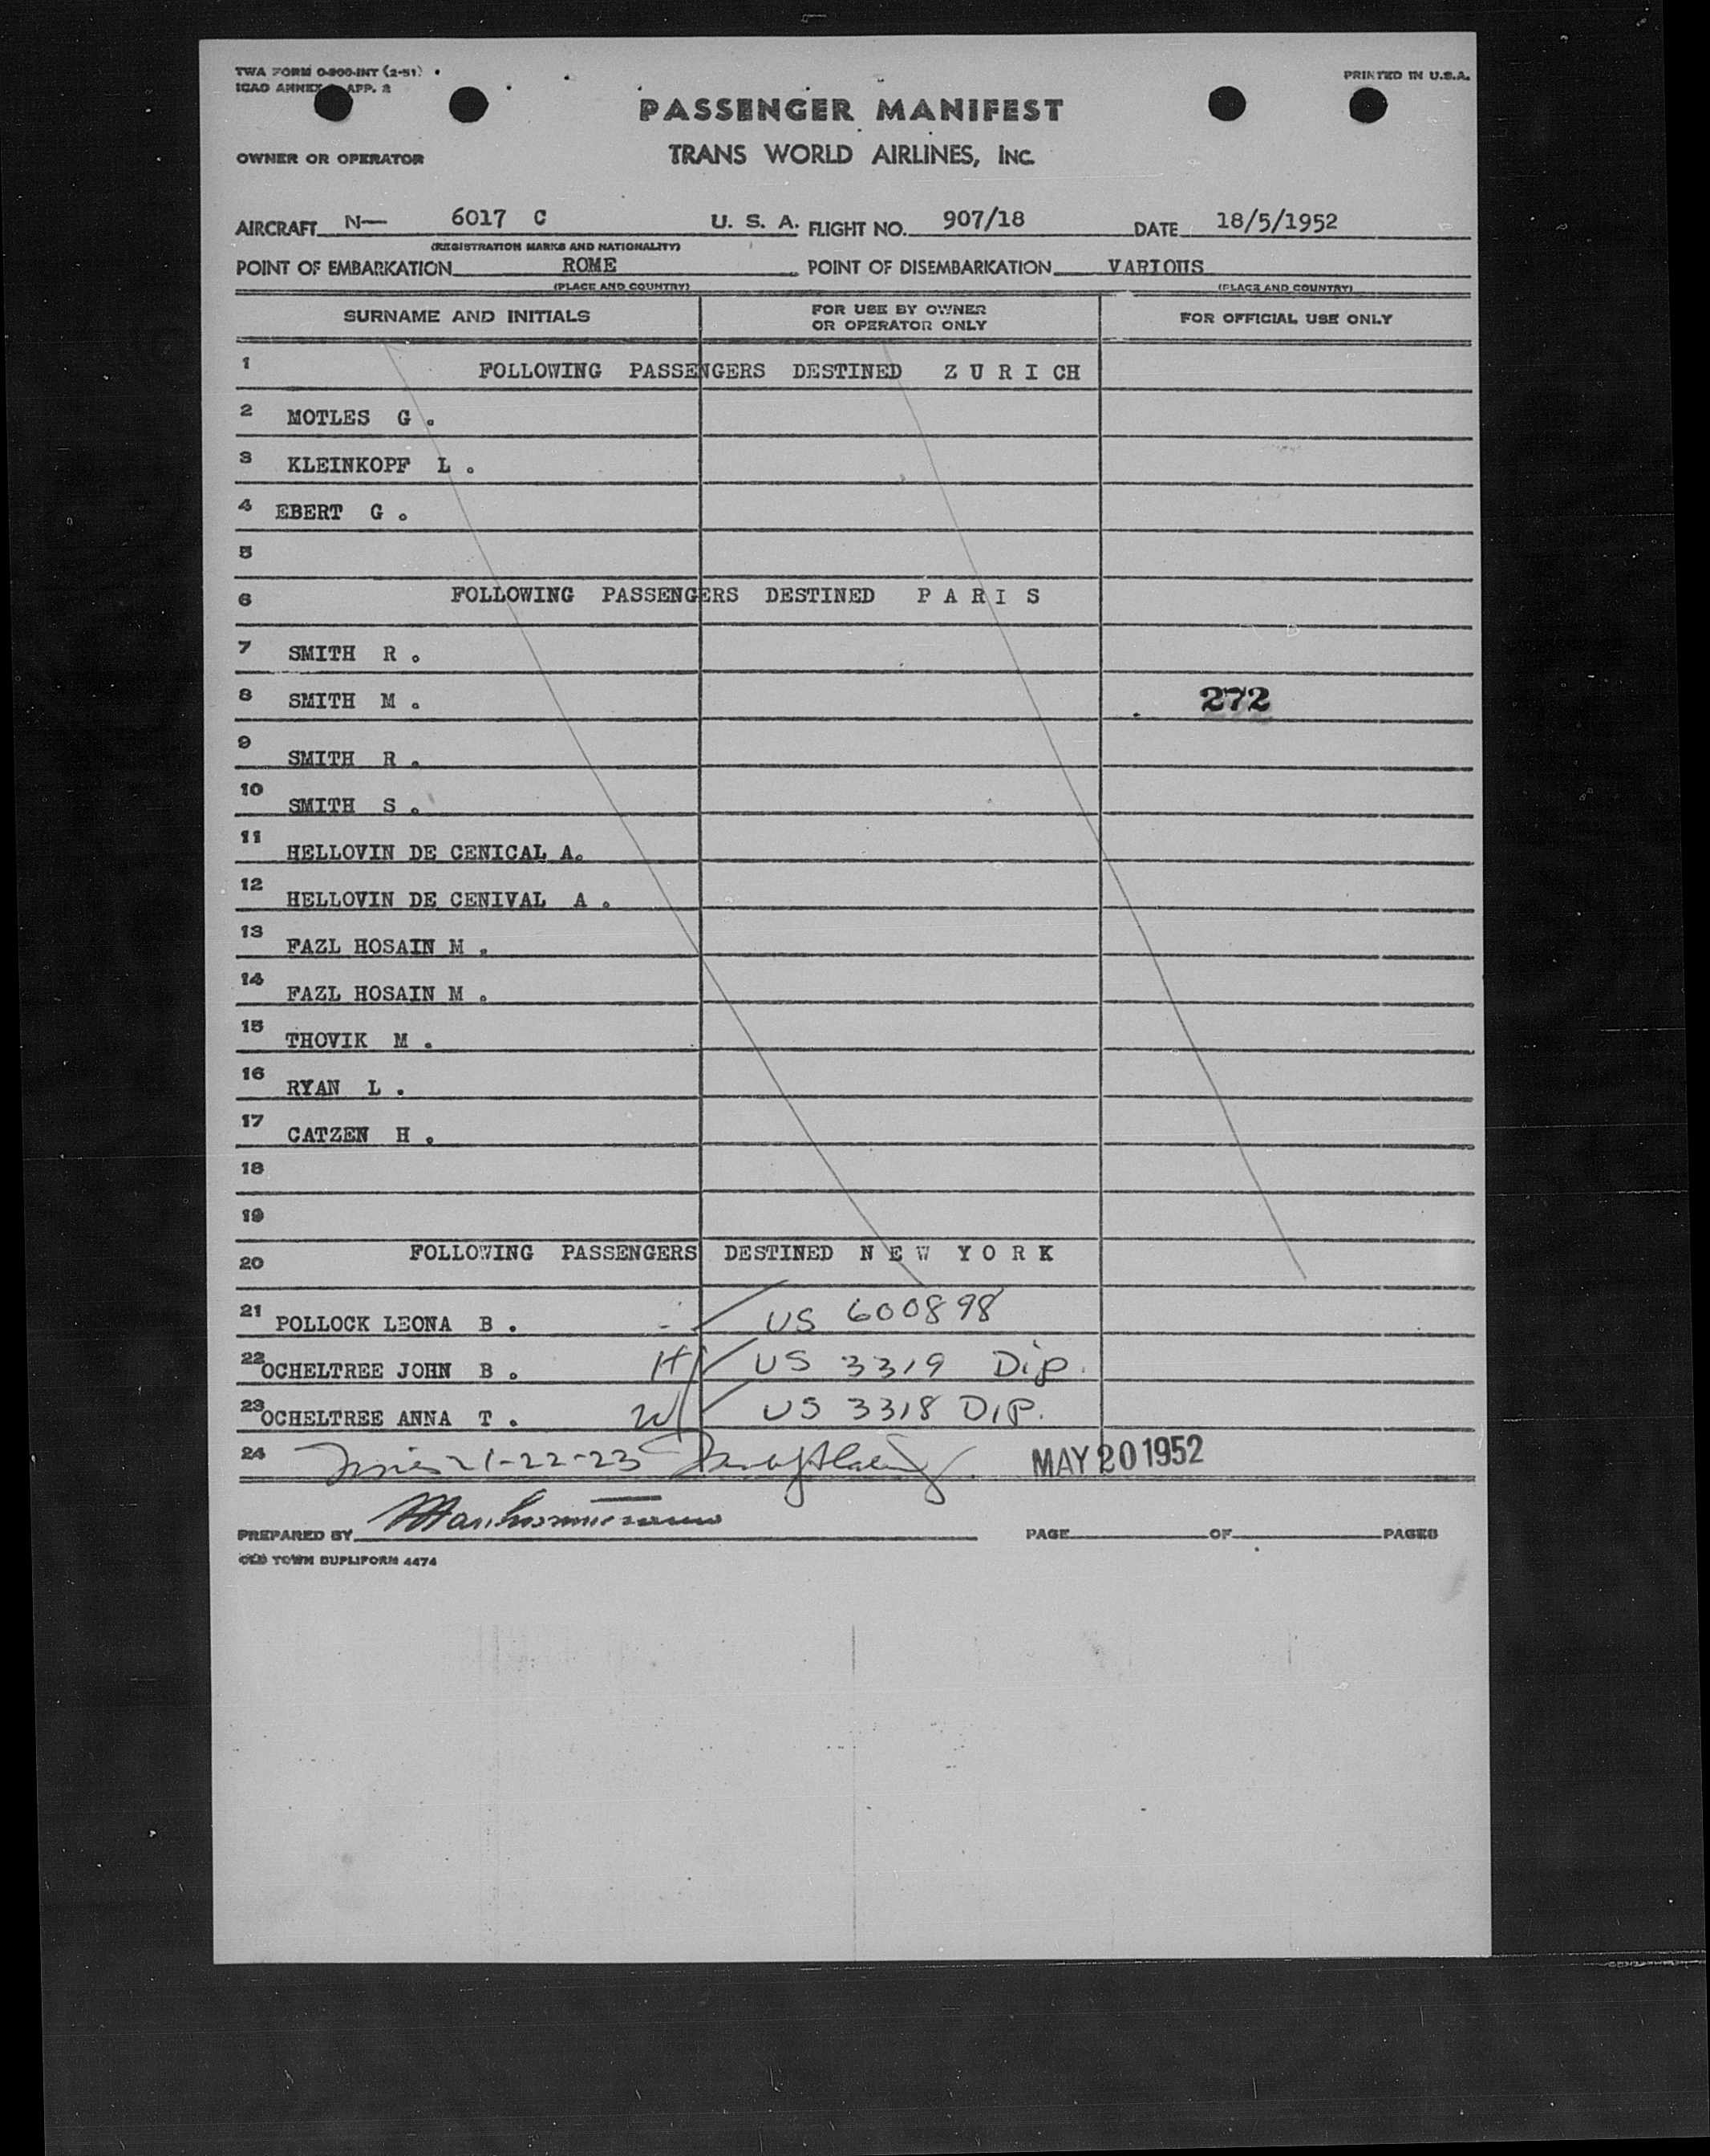 TWA FORM O-800-INT (2-51)
PRINTED IN U.S.A.
ICAO ANNEX APP. 2
PASSENGER MANIFEST
OWNER OR OPERATOR
TRANS WORLD AIRLINES, INC.
AIRCRAFT N— 6017 C U. S. A. FLIGHT NO. 907/18 DATE 18/5/1952
(REGISTRATION MARKS AND NATIONALITY)
POINT OF EMBARKATION ROME POINT OF DISEMBARKATION VARIOUS
(PLACE AND COUNTRY) (PLACE AND COUNTRY)
SURNAME AND INITIALS FOR USE BY OWNER OR OPERATOR ONLY FOR OFFICIAL USE ONLY
1 FOLLOWING PASSENGERS DESTINED Z U R I CH
2 MOTLES G .
3 KLEINKOPF L .
4 EBERT G .
5
6 FOLLOWING PASSENGERS DESTINED P A R I S
7 SMITH R .
8 SMITH M . 272
9 SMITH R .
10 SMITH S .
11 HELLOVIN DE CENICAL A.
12 HELLOVIN DE CENIVAL A .
13 FAZL HOSAIN M .
14 FAZL HOSAIN M .
15 THOVIK M .
16 RYAN L .
17 CATZEN H .
18
19
20 FOLLOWING PASSENGERS DESTINED N E W Y O R K
21 POLLOCK LEONA B . US 600898
22 OCHELTREE JOHN B . H US 3319 Dip.
23 OCHELTREE ANNA T . W US 3318 DIP.
24 21-22-23 MAY 20 1952
PREPARED BY PAGE OF PAGES
OLD TOWN DUPLIFORM 4474